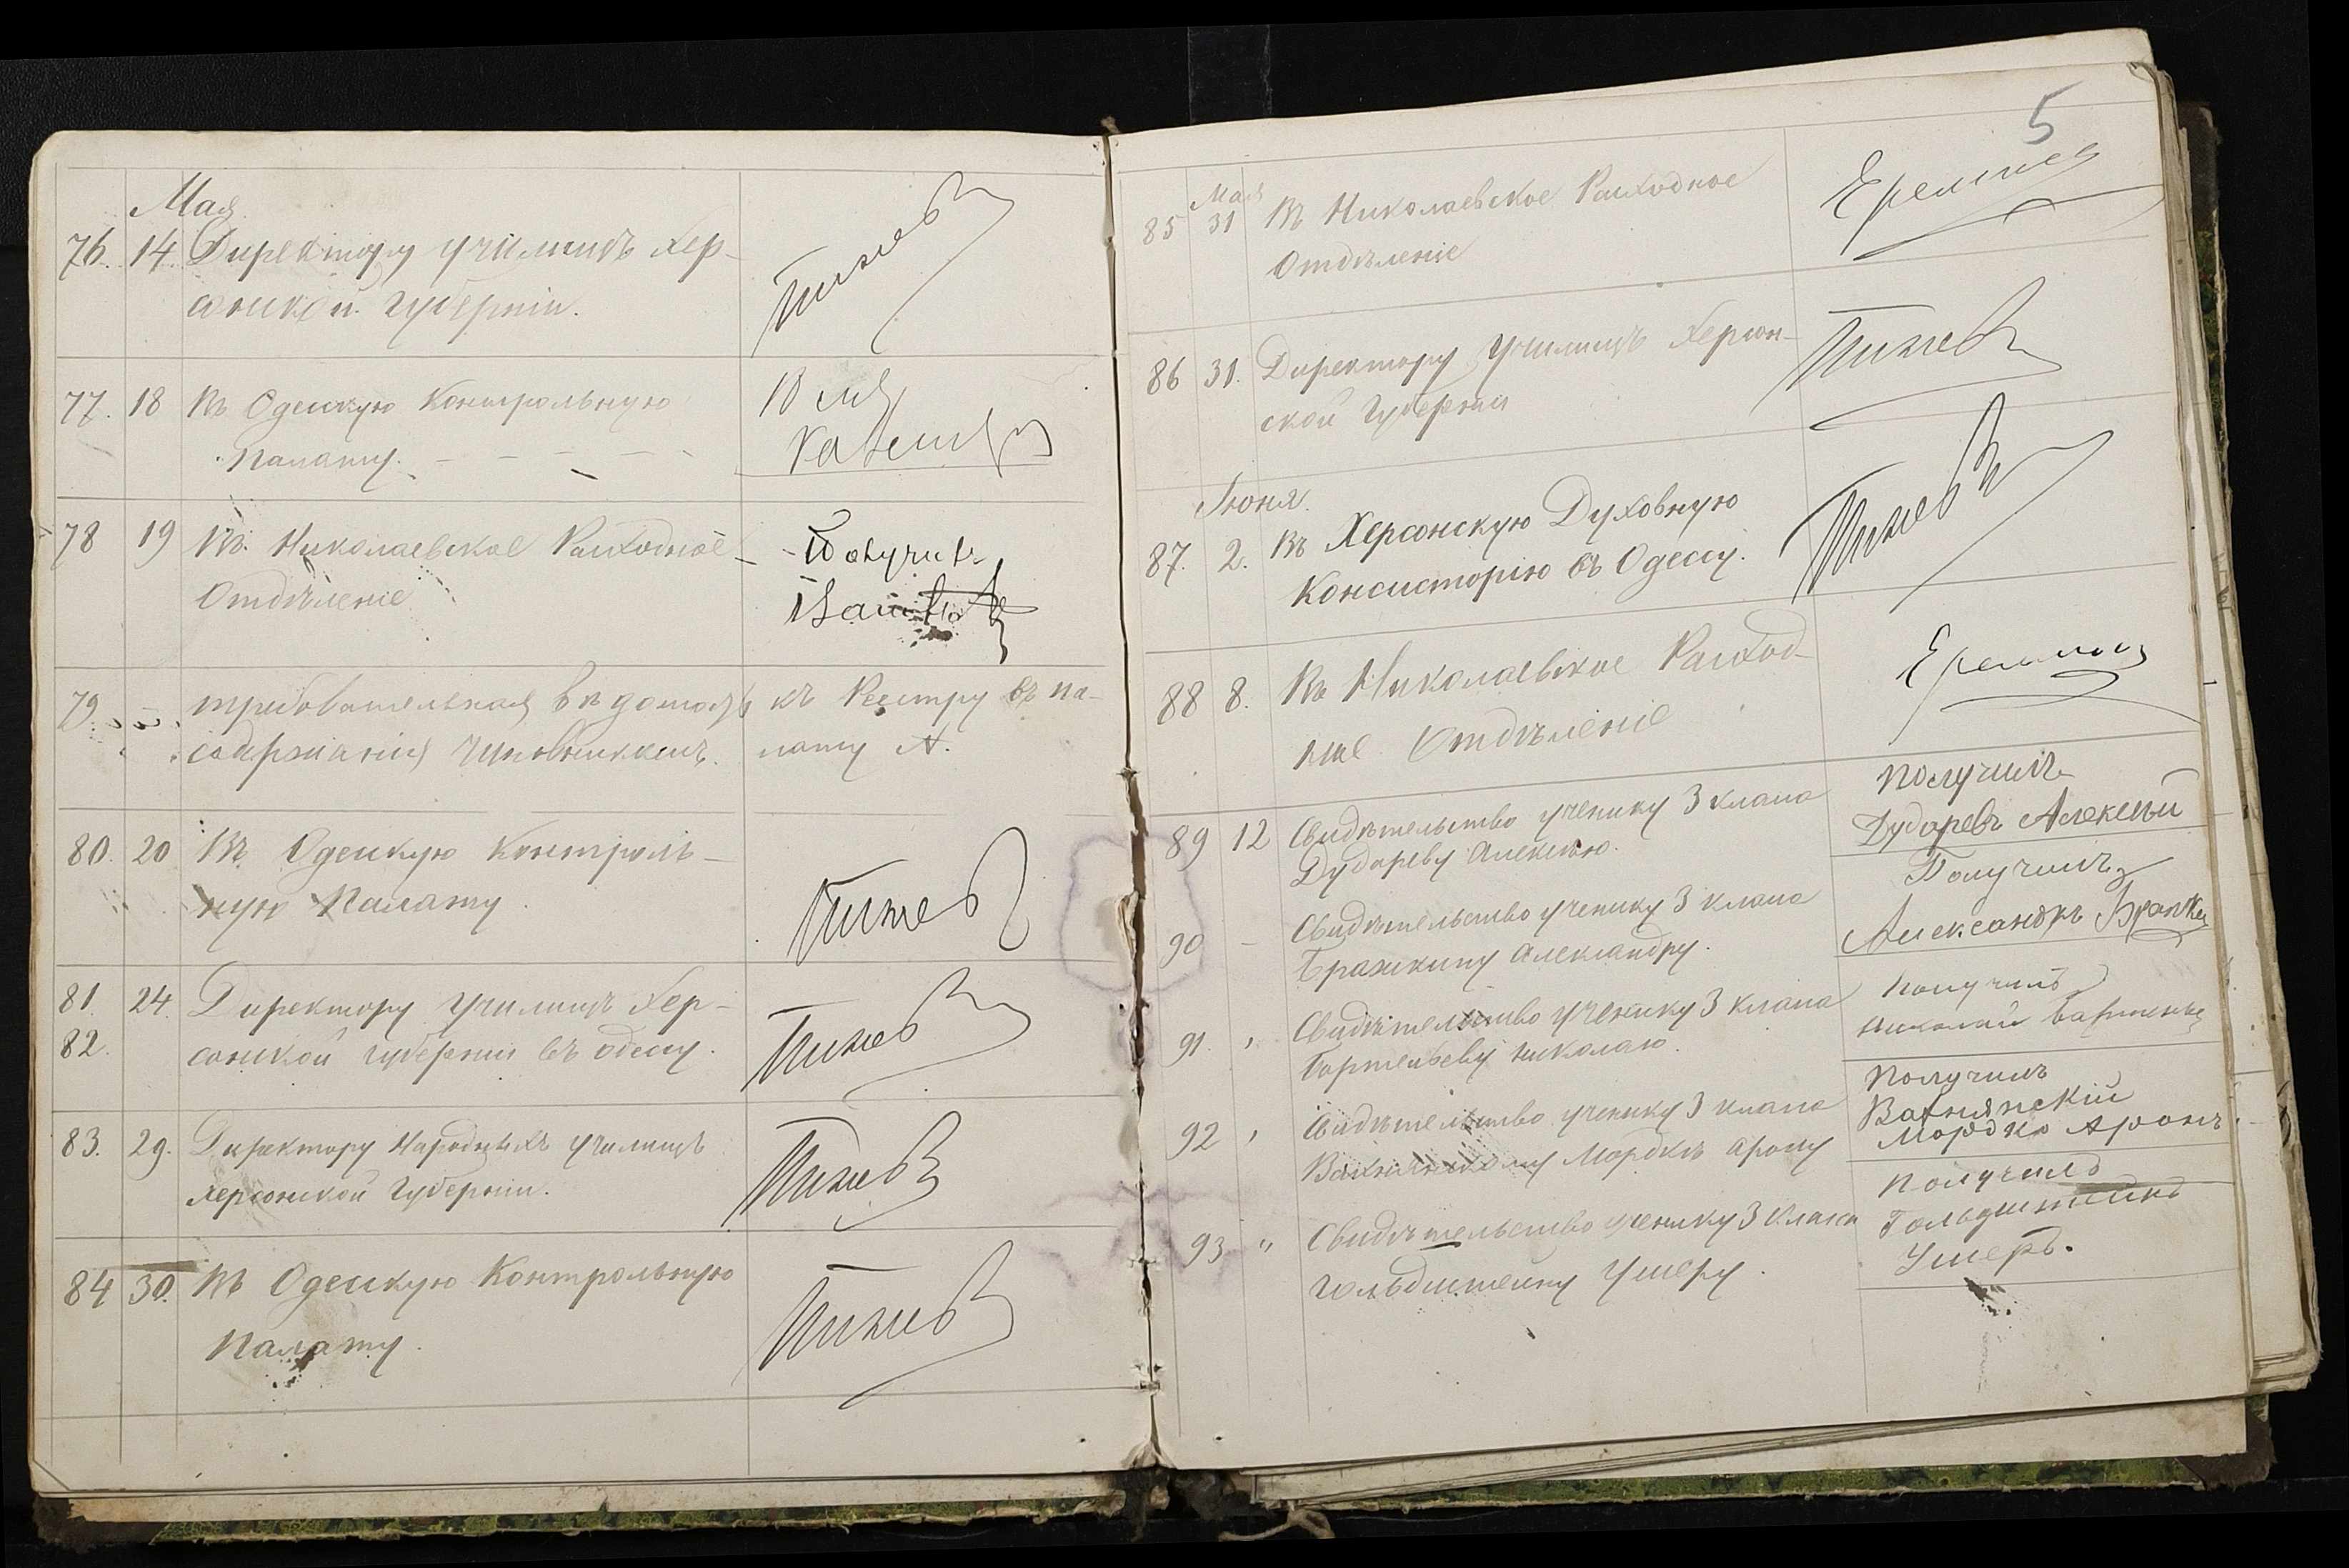 Мая
76. 14. Директору училищъ Хер-
сонской губерніи.
77. 18 Въ Одесскую Контрольную
Палату.
18 мая
78 19 Въ Николаевское Расходное
Отдѣленіе
Получилъ
79. требовательная вѣдомость къ Реестру въ па-
содержанія чиновникамъ. лату №.
80. 20 Въ Одесскую Контроль-
ную Палату.
81. 24. Директору училищъ Хер-
82. сонской губерніи въ Одессу.
83. 29. Директору Народныхъ училищъ
Херсонской Губерніи.
84 30. Въ Одесскую Контрольную
Палату.
5
Мая
85 31 Въ Николаевское Расходное
Отдѣленіе
86 31. Директору училищъ Херсон-
ской Губерніи
Іюня.
87. 2. Въ Херсонскую Духовную
Консисторію въ Одессу.
88 8. Въ Николаевское Расход-
ное Отдѣленіе
89 12 Свидѣтельство ученику 3 класса
Дубареву Алексѣю.
Получилъ
Дубаревъ Алексѣй
90 - Свидѣтельство ученику 3 класса
Бражкину Александру.
Получилъ
Александръ
91. Свидѣтельство ученику 3 класса
Николаю.
Получилъ
Николай
92 Свидѣтельство ученику 3 класса
Вахнянскому Мордкѣ Арону
Получилъ
Вахнянскій
Мордко Аронъ
93 " Свидѣтельство ученику 3 класса
Гольдштейну Ушеру.
Получилъ
Гольдштейнъ
Ушеръ.